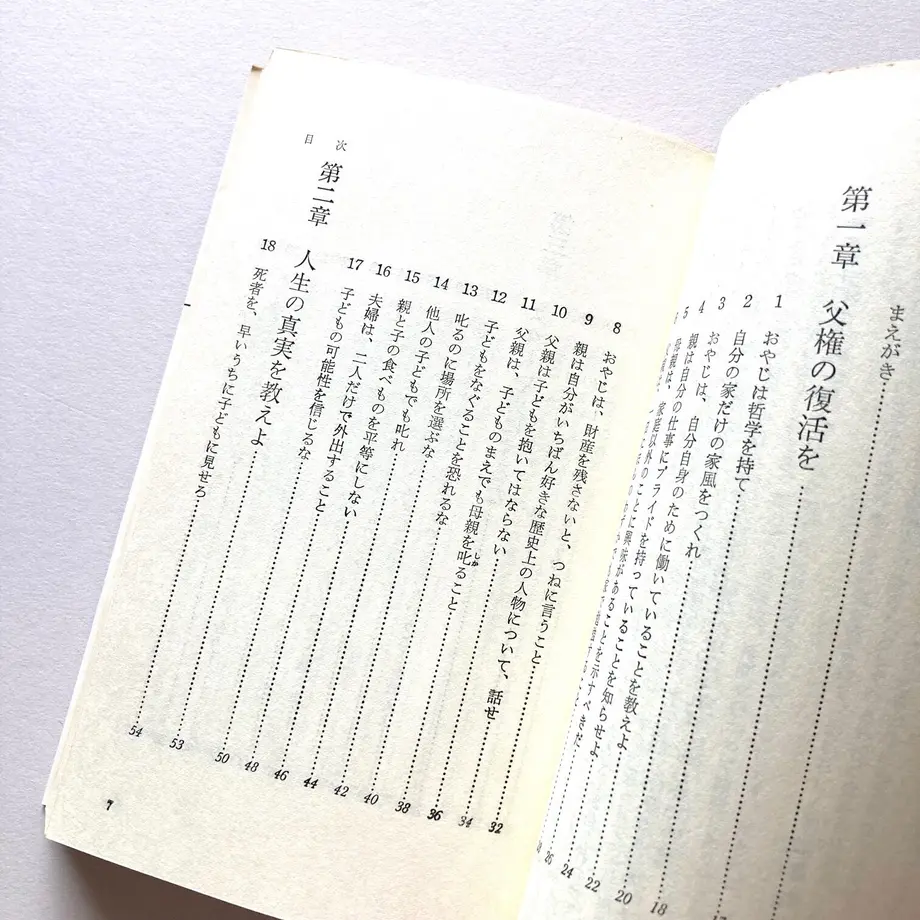 まえがき
第一章 父権の復活を
1 おやじは哲学を持て 18
2 自分の家だけの家風をつくれ 20
3 おやじは、自分自身のために働いていることを教えよ 22
4 親は自分の仕事にプライドを持っていることを知らせよ 24
5 母親は、家庭以外のことに興味があることを 26
8 おやじは、財産を残さないと、つねに言うこと 32
9 親は自分がいちばん好きな歴史上の人物について、話せ 34
10 父親は子どもを抱いてはならない 36
11 父親は、子どものまえでも母親を叱ること 38
12 子どもをなぐることを恐れるな 40
13 叱るのに場所を選ぶな 42
14 他人の子どもでも叱れ 44
15 親と子の食べものを平等にしない 46
16 夫婦は、二人だけで外出すること 48
17 子どもの可能性を信じるな 50
第二章 人生の真実を教えよ 53
18 死者を、早いうちに子どもに見せろ 54
目次
7